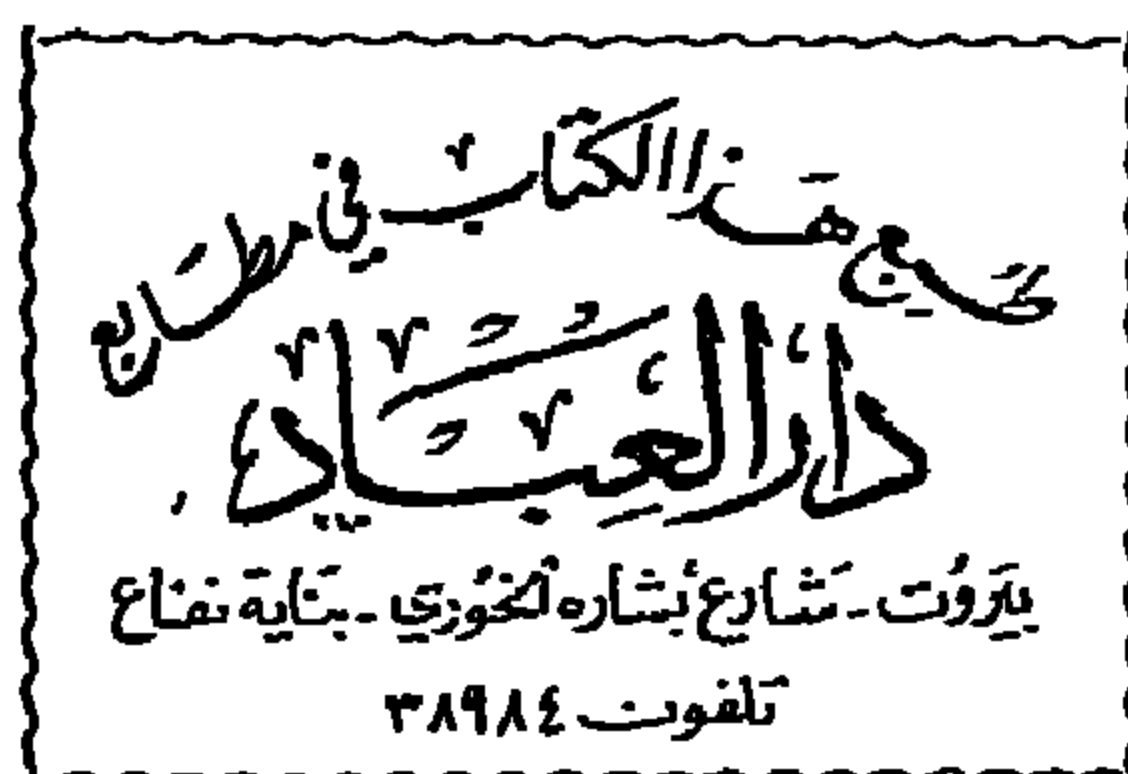 طبع هذا الكتاب في مطابع
دار العباد
بيروت - شارع بشاره الخوري - بناية
تلفون ٣٨٩٨٤